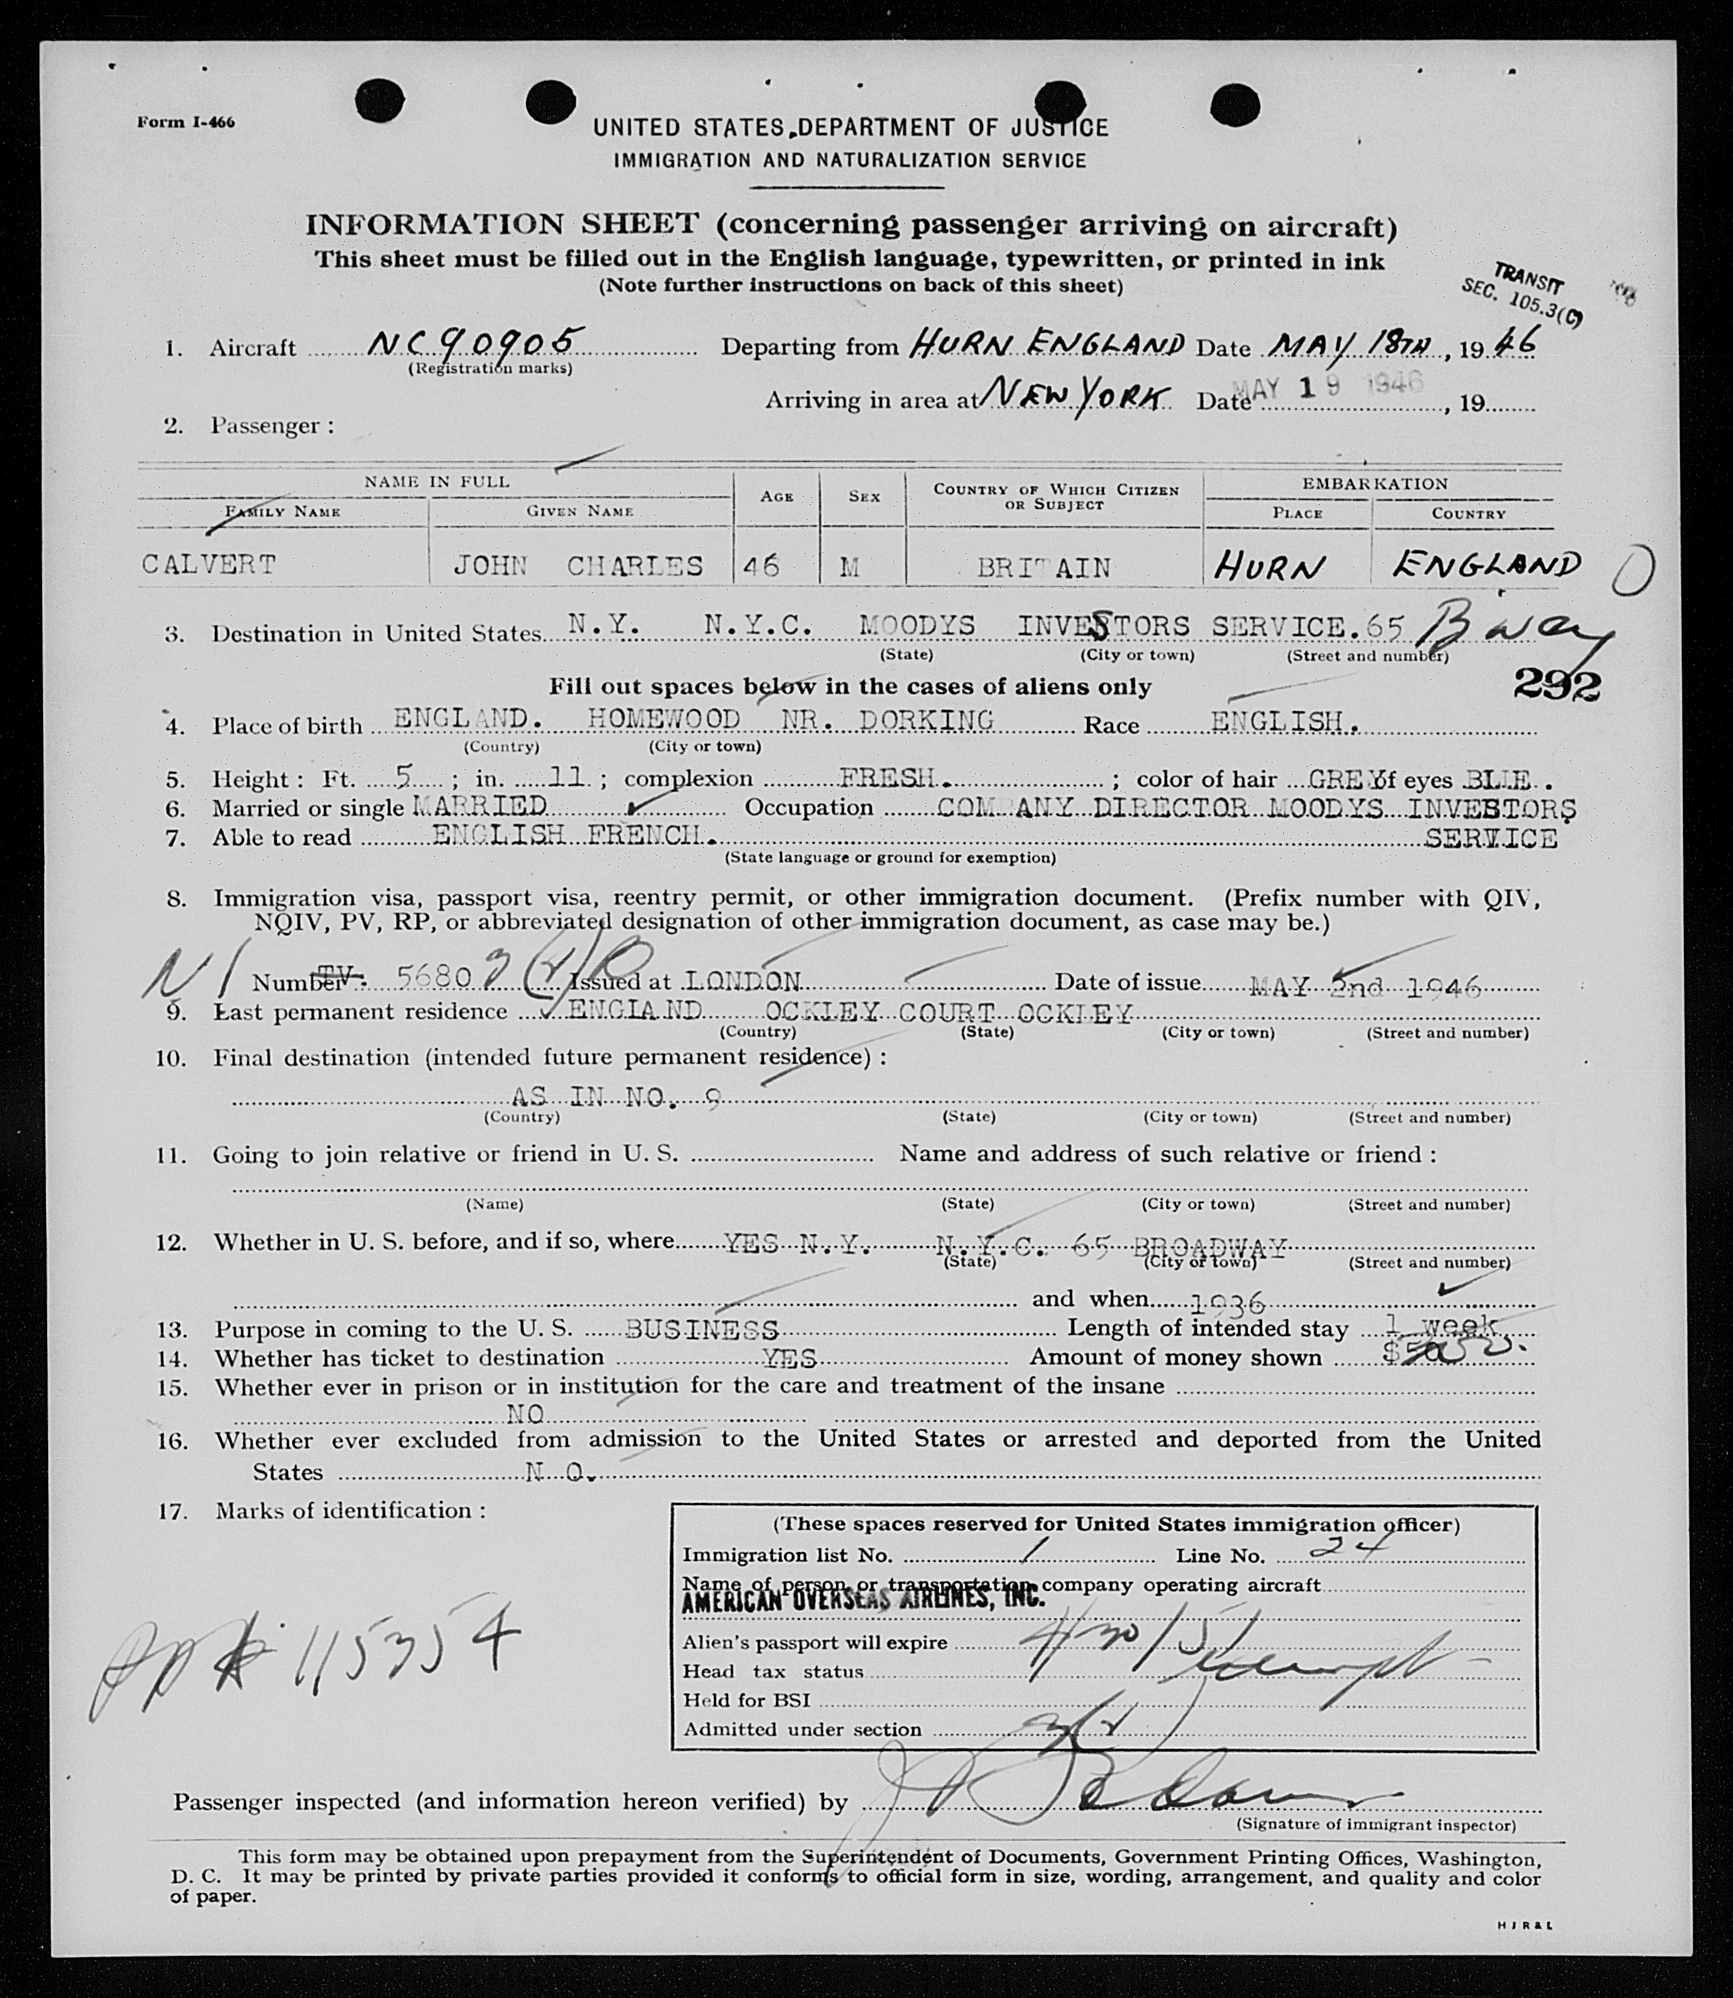 Form I-466
UNITED STATES DEPARTMENT OF JUSTICE
IMMIGRATION AND NATURALIZATION SERVICE
INFORMATION SHEET (concerning passenger arriving on aircraft)
This sheet must be filled out in the English language, typewritten, or printed in ink
(Note further instructions on back of this sheet)
TRANSIT
SEC. 105.3(C)
1. Aircraft NC90905 Departing from HURN ENGLAND Date MAY 18TH, 1946
(Registration marks)
Arriving in area at NEW YORK Date MAY 19 1946, 19
2. Passenger :
NAME IN FULL AGE SEX COUNTRY OF WHICH CITIZEN OR SUBJECT EMBARKATION
FAMILY NAME GIVEN NAME PLACE COUNTRY
CALVERT JOHN CHARLES 46 M BRITAIN HURN ENGLAND
3. Destination in United States N.Y. N.Y.C. MOODYS INVESTORS SERVICE. 65 B'way
(State) (City or town) (Street and number)
Fill out spaces below in the cases of aliens only
292
4. Place of birth ENGLAND. HOMEWOOD NR. DORKING Race ENGLISH.
(Country) (City or town)
5. Height : Ft. 5 ; in. 11 ; complexion FRESH. ; color of hair GREY of eyes BLUE.
6. Married or single MARRIED Occupation COMPANY DIRECTOR MOODYS INVESTORS
7. Able to read ENGLISH FRENCH. SERVICE
(State language or ground for exemption)
8. Immigration visa, passport visa, reentry permit, or other immigration document. (Prefix number with QIV,
NQIV, PV, RP, or abbreviated designation of other immigration document, as case may be.)
Number TV. 5680 3(2) Issued at LONDON Date of issue MAY 2nd 1946
9. Last permanent residence ENGLAND OCKLEY COURT OCKLEY
(Country) (State) (City or town) (Street and number)
10. Final destination (intended future permanent residence) :
AS IN NO. 9
(Country) (State) (City or town) (Street and number)
11. Going to join relative or friend in U. S. Name and address of such relative or friend :
(Name) (State) (City or town) (Street and number)
12. Whether in U. S. before, and if so, where YES N.Y. N.Y.C. 65 BROADWAY
(State) (City or town) (Street and number)
and when 1936
13. Purpose in coming to the U. S. BUSINESS Length of intended stay 1 week
14. Whether has ticket to destination YES Amount of money shown
15. Whether ever in prison or in institution for the care and treatment of the insane
NO
16. Whether ever excluded from admission to the United States or arrested and deported from the United
States N O.
17. Marks of identification :
(These spaces reserved for United States immigration officer)
Immigration list No. 1 Line No. 24
Name of person or transportation company operating aircraft
AMERICAN OVERSEAS AIRLINES, INC.
115354
Alien's passport will expire 4/30/51
Head tax status exempt
Held for BSI
Admitted under section 3(2)
Passenger inspected (and information hereon verified) by
(Signature of immigrant inspector)
This form may be obtained upon prepayment from the Superintendent of Documents, Government Printing Offices, Washington,
D. C. It may be printed by private parties provided it conforms to official form in size, wording, arrangement, and quality and color
of paper.
H J R & L